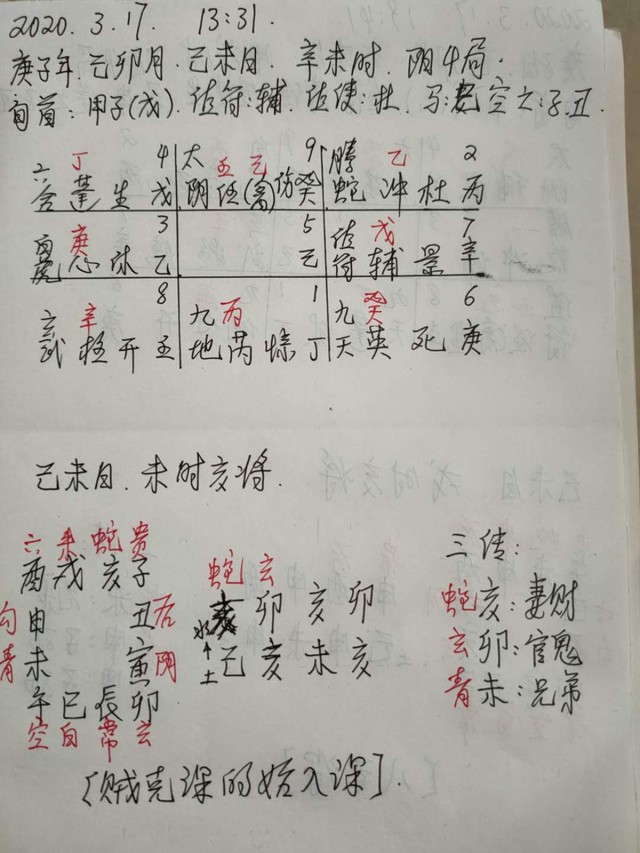 2020.3.17. 13:31.
庚子年.己卯月.己未日. 辛未时. 阴4局.
旬首:甲子(戊).值符:辅.值使:杜.马:巳.空亡:子.丑.
丁 4 太 壬 己 9 腾 乙 2
六合 蓬 生 戊 阴 任(禽)伤 癸 蛇 冲 杜 丙
庚 3 5 值 戊 7
白虎 心 休 乙 己 符 辅 景 辛
辛 8 九 丙 1 九 癸 6
玄武 柱 开 壬 地 芮 惊 丁 天 英 死 庚
己未日.未时亥将.
六 朱 蛇 贵 三传:
酉 戌 亥 子 蛇 玄
勾 申 丑 后 亥 卯 亥 卯 蛇 亥:妻财
青 未 寅 阴 水↑土 己 亥 未 亥 玄 卯:官鬼
午 巳 辰 卯 青 未:兄弟
空 白 常 玄
[贼克课的始入课].